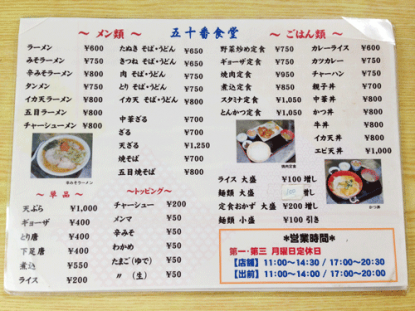 五十番食堂
〜 メン類 〜
ラーメン ¥600
みそラーメン ¥750
辛みそラーメン ¥800
タンメン ¥750
イカ天ラーメン ¥800
五目ラーメン ¥800
チャーシューメン ¥800
辛みそラーメン
たぬき そば・うどん ¥650
きつね そば・うどん ¥650
肉 そば・うどん ¥750
とり そば・うどん ¥750
イカ天 そば・うどん ¥800
中華ざる ¥700
ざる ¥700
天ざる ¥1,250
焼そば ¥700
五目焼そば ¥800
〜 単品 〜
天ぷら ¥1,000
ギョーザ ¥400
とり唐 ¥400
下足唐 ¥400
煮込 ¥550
ライス ¥200
〜トッピング〜
チャーシュー ¥200
メンマ ¥50
辛みそ ¥50
わかめ ¥50
たまご(ゆで) ¥50
〃 (生) ¥50
〜 ごはん類 〜
野菜炒め定食 ¥750
ギョーザ定食 ¥750
焼肉定食 ¥950
煮込定食 ¥850
スタミナ定食 ¥1,050
とんかつ定食 ¥1,050
焼肉定食
カレーライス ¥600
カツカレー ¥750
チャーハン ¥750
親子丼 ¥700
中華丼 ¥800
かつ丼 ¥800
牛丼 ¥800
イカ天丼 ¥800
エビ天丼 ¥1,000
かつ丼
ライス 大盛 ¥100 増し
麺類 大盛 増し
定食おかず 大盛 ¥200 増し
麺類 小盛 ¥100 引き
*営業時間*
第一・第三 月曜日定休日
【店舗】 11:00〜14:30 / 17:00〜20:30
【出前】 11:00〜14:00 / 17:00〜20:00